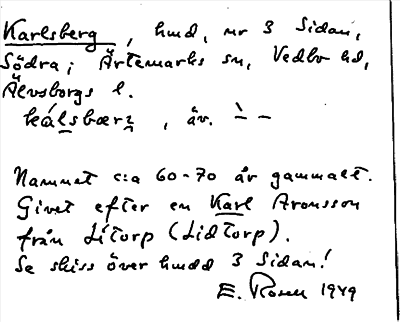 Karlsberg, hmd, nr 3 Sidan,
Södra; Ärtemarks sn, Vedbo hd,
Älvsborgs l.
kálsbærʒ, äv. ` – –
Namnet c:a 60-70 år gammalt.
Givet efter en Karl Aronsson
från Litorp (Lidtorp).
Se skiss över hmdd 3 Sidan!
E. Rosell 1949